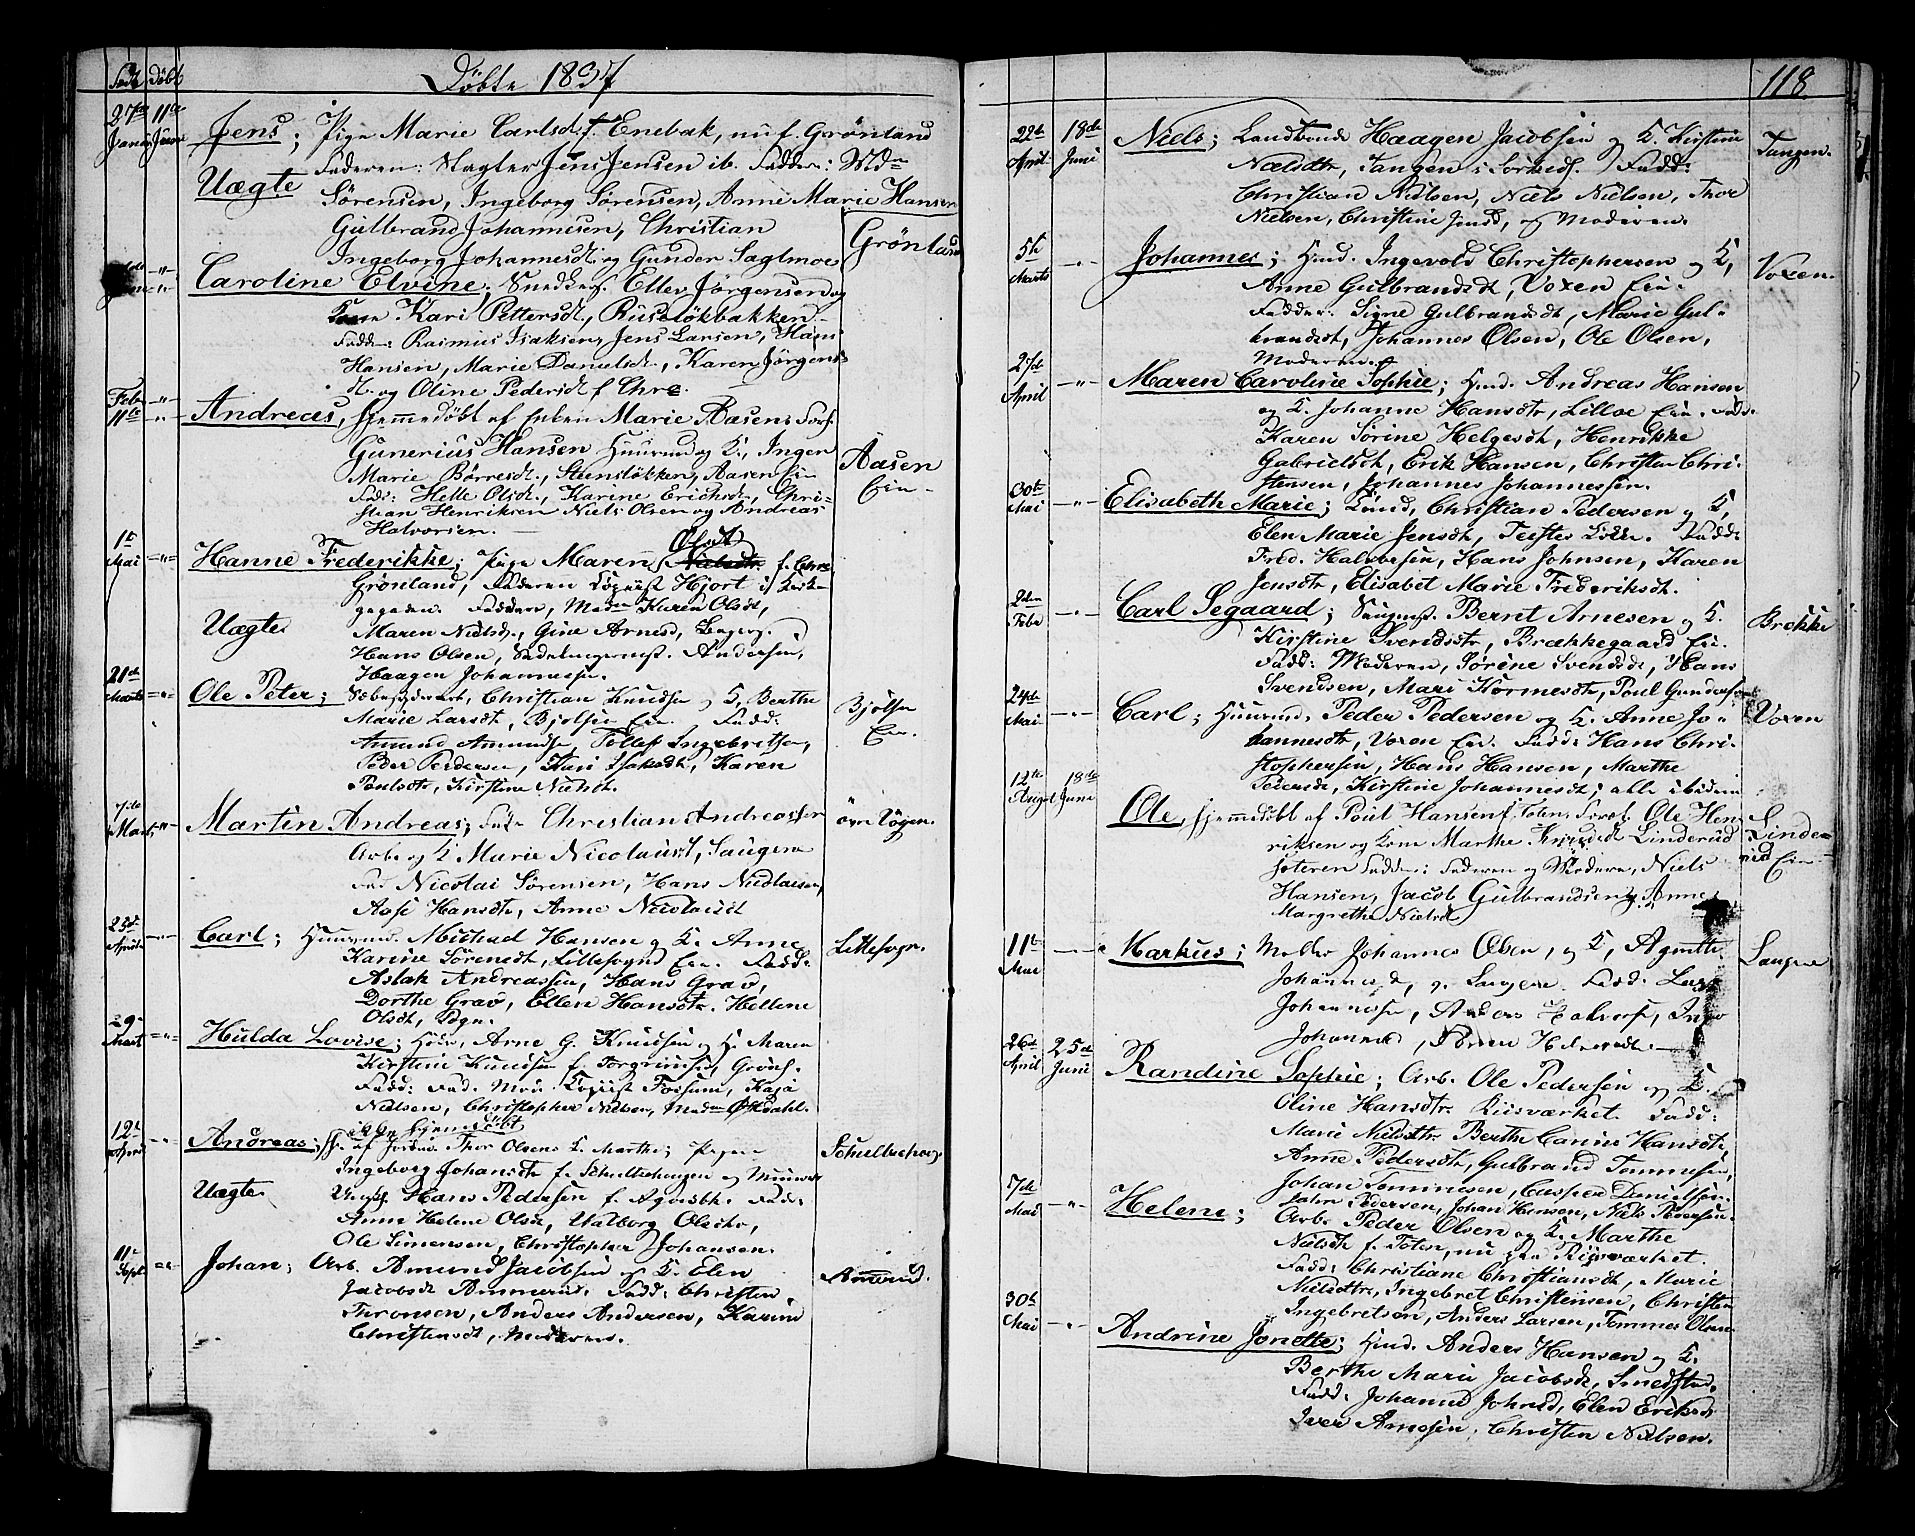 Født Döbt Döbte 1837
27de 11te
Janr Juni Jens; Pige Marie Carlsdt f. Enebak, nu f. Grönland
Faderen: Slagter Jens Jensen ib. Fadder: Mdm
Uægte Sörensen, Ingeborg Sörensen, Anne Marie Hansen
Gulbrand Johannesen, Christian
Ingeborg Johannesdt. og Gunder Saglmoe Grönland
Caroline Elvine; Snedkers. Ellef Jörgensen og
Kone Kari Pettersdt., Ruselökbakken
Fadd: Rasmus Isaksen, Jens Larsen, Hans
Hansen, Marie Danielsdt., Karen Jörgens
dt. og Oline Pedersdt f Chra
Feb
11te Andreas, hjemmedöbt af Enken Marie Aasen; Forf.
Gunerius Hansen Huusmd og K. Inger
Marie Börresdt., Steenslökken, Aasen Ei- Aasen
Fadd: Helle Olsdt., Karine Erichsdt., Chri- Eie
stian Henriksen Niels Olsen og Andreas
Halvorsen.
Olsdt
1te Mai Hanne Frederikke; Pige Maren f. Chra
Grönland, Faderen Copiist Hjort i Kirk-
gegaden. Faddere, Madm Karen Olsdt,
Uægte Maren Nielsd., Gine Arnesd,
Hans Olsen, Andersen,
Haagen Johannesen.
21de
Marts Ole Peter; Christian Knudsen og K. Berthe
Marie Larsdt, Bjölsen Eie. Fadd: Bjölsen
Amund Amundsen, Tollef Ingebretsen, Eie.
Peder Pedersen, Kari Isaksdt, Karen
Poulsdt, Kirstine Nielsdt.
7de
Mart Martin Andreas; Christian Andreassen övre Vögen.
Arb. og K Marie Nicolaisdt, Saugene
Fad Nicolai Sörensen, Hans Nicolaisen,
Aase Hansdt, Anne Nicolaisdt
23d
April Carl; Huusmd. Michael Hansen og K. Anne
Karine Sörensdt, Lillesogn Eie. Fadd: Littlesogn.
Aslak Andreassen, Hans Grav,
Dorthe Grav, Ellen Hansdt. Hellene
Olsdt, Sogn.
29
Mart Hulda Lovise; Arne G. Knudsen og H. Maren
Kirstine Knudsen f. Torgrimsen, Grönl.
Fadd: Fad. Mod. Copiist Fossum, Kaja
Nielsen, Christopher Nielsen, Madm Östdahl.
12t
April Andreas; hjemmedöbt
af Thor Olsens K. Marthe; Pigen Schultzehaug
Ingeborg Johansdt f. Schultzehaugen og
Uægte Hans Pedersen f. Fadd:
Anne Helene Olsdt, Valborg Olsdtr,
Ole Simensen, Christopher Johansen.
11t
Sept. Johan; Arb. Amund Jacobsen og K. Elen
Jacobsdt Ammerud. Fadd: Christen Amerud.
Tronsen, Anders Andersen, Karine
Christensdt, Moderen.
118
22de 18de
April Juni Niels; Haagen Jacobsen og K. Kirstine Tangen.
Nielsdtr, Tangen i Sörkedl. Fadd:
Christian Nielsen, Niels Nielsen, Thor
Nielsen, Christine Jensd, og Moderen.
5te
Marts Johannes; Hmd. Ingevold Christophersen og K, Voxen.
Anne Gulbrandsdt, Voxen Eie.
Fadder. Signe Gulbrandsdt, Marie Gul-
brandsdt, Johannes Olsen, Ole Olsen,
Moderen.
27d
April Maren Caroline Sophie; Hmd. Andreas Hansen
og K. Johanne Hansdtr, Lilloe Eie. Fadd:
Karen Sörine Helgesdt, Henrikke
Gabrielsdt, Erik Hansen, Christen Chri-
stensen, Johannes Johannessen.
30te
Mai Elisabeth Marie; Christian Pedersen og K,
Elen Marie Jensdt, Fadd:
Fred. Halvorsen, Hans Johnsen, Karen
Jensdtr, Elisabet Marie Frederiksdt.
2den
Febr Carl Segaard; Saugmst. Bernt Arnesen og K. Brekke
Kirstine Svendsdtr, Brækkegaard Eie.
Fadd: Moderen, Sörine Svendsdt, Hans
Svendsen, Mari Kormesdt, Poul Gundersen
24de
Mai Carl; Huusmd. Peder Pedersen og K. Anne Jo- Voxen
hannesdtr, Voxen Eie. Fadd: Hans Chri-
stophersen, Hans Hansen, Marthe
Pedersdt, Kirstine Johannesdt; alle ibidem
12te 18de
August Juni Ole, hjemmedöbt af Poul Hansen f. Toten, Ole Hen-
riksen og Kone Marthe Linderud Linde-
Fadd: Faderen og Moderen, Niels rud
Hansen, Jacob Gulbrandsen, Anne Eie
Margrethe Nielsdt
11te
Mai Markus; Möller Johannes Olsen, og K, Agnethe Saugen
Johannesd, v. Saugene. Fadd: Lars
Johannesen, Anders Halvorsen,
Johannesd,
26de 25de
April Juni Randine Sophie; Arb. Ole Pedersen og K.
Oline Hansdtr. Riisværket. Fadd:
Marie Nielsdtr. Berthe Carine Hansdt,
Anne Pedersdt, Gulbrand Tommesen,
Johan Tommesen, Casper Danielsen.
John Pedersen, Johan Hansen, Niels Pedersen.
7de
Mai Helene; Arb. Peder Olsen og K. Marthe
Nielsdt f. Toten, nu fra Riisværket.
Fadd: Christiane Christiansdt, Marie
Nielsdtr, Ingebret Christensen, Christen
Ingebretsen, Anders Larsen, Tommes Olsen
30te
Mai Andrine Jonette; Hmd. Anders Hansen og K.
Berthe Marie Jacobsdt, Smedstad.
Fadd: Johanne Johnsd, Elen Eriksd
Iver Arnesen, Christen Nielsen.